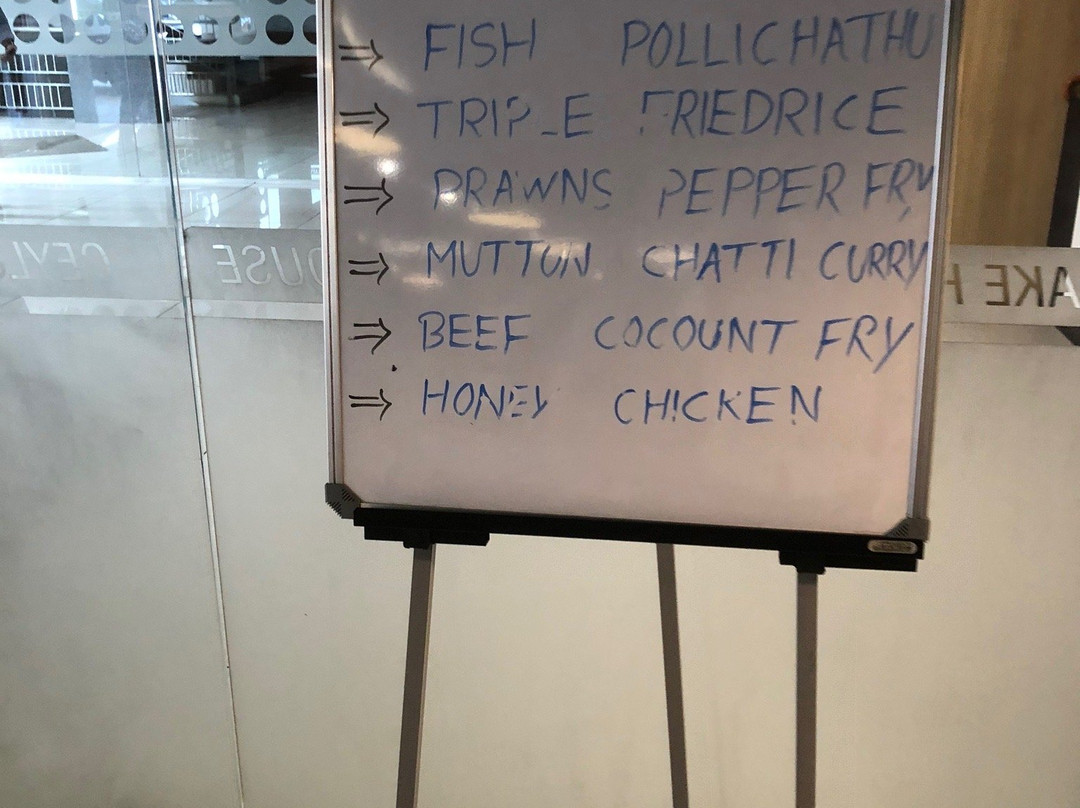 ⇒ FISH POLLICHATHU
⇒ TRIPLE FRIEDRICE
⇒ PRAWNS PEPPER FRY
⇒ MUTTON CHATTI CURRY
⇒ BEEF COCOUNT FRY
⇒ HONEY CHICKEN